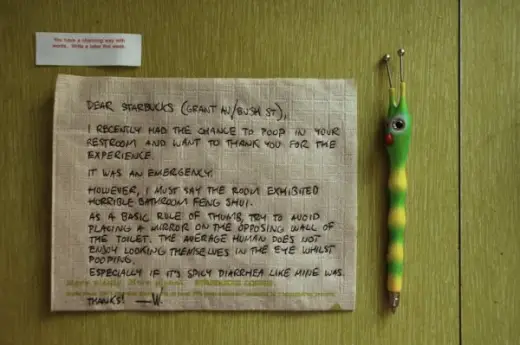 You have a charming way with
words. Write a letter this week.
DEAR STARBUCKS (GRANT AV/BUSH ST),
I RECENTLY HAD THE CHANCE TO POOP IN YOUR
RESTROOM AND WANT TO THANK YOU FOR THE
EXPERIENCE.
IT WAS AN EMERGENCY.
HOWEVER, I MUST SAY THE ROOM EXHIBITED
HORRIBLE BATHROOM FENG SHUI.
AS A BASIC RULE OF THUMB, TRY TO AVOID
PLACING A MIRROR ON THE OPPOSING WALL OF
THE TOILET. THE AVERAGE HUMAN DOES NOT
ENJOY LOOKING THEMSELVES IN THE EYE WHILST
POOPING.
ESPECIALLY IF IT'S SPICY DIARRHEA LIKE MINE WAS.
THANKS! —W.